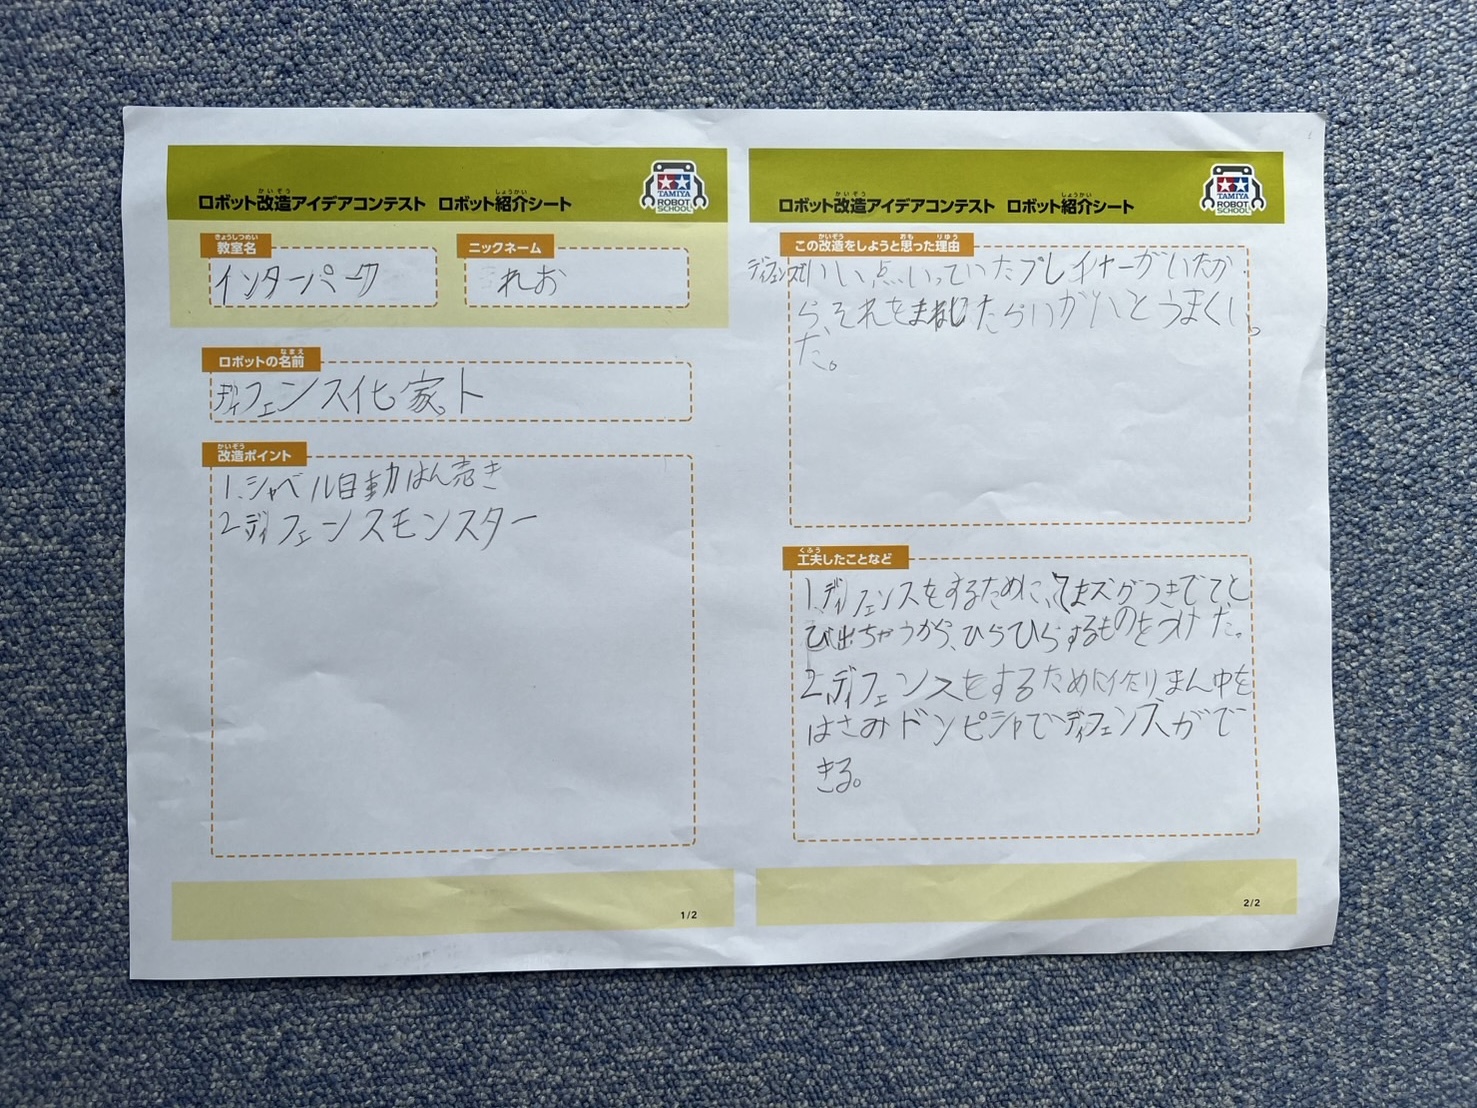 ロボット改造アイデアコンテスト ロボット紹介シート
かいぞう
しょうかい
TAMIYA
ROBOT
SCHOOL
きょうしつめい
教室名
インターパーク
ニックネーム
れお
なまえ
ロボットの名前
ディフェンス化家。ト
かいぞう
改造ポイント
1.シャベル自動はん売き
2.ディフェンスモンスター
1/2
ロボット改造アイデアコンテスト ロボット紹介シート
かいぞう
しょうかい
TAMIYA
ROBOT
SCHOOL
かいぞう
おも
りゆう
この改造をしようと思った理由
ディフェンスでいい点いっていたプレイヤーがいたか
ら、それをまねしたらいがいとうまくい
た。
くふう
工夫したことなど
1.ディフェンスをするために、たまズがつきでてと
び出ちゃうから、ひらひらするものをつけた。
2.ディフェンスをするために作りまん中を
はさみドンピシャでディフェンスがで
きる。
2/2